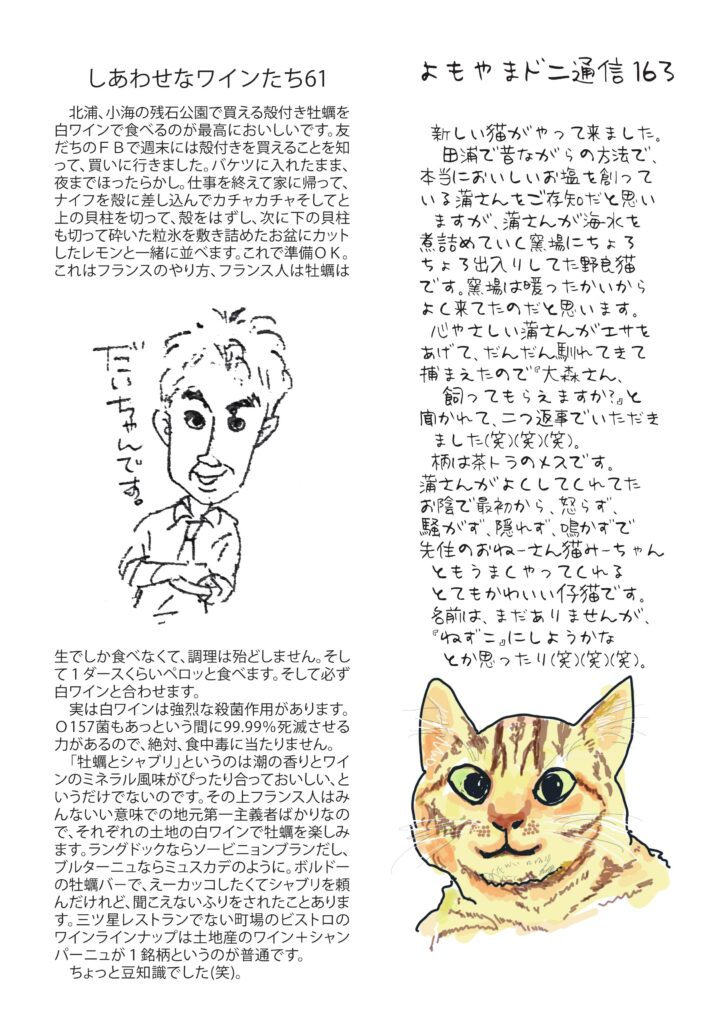 しあわせなワインたち61
　北浦、小海の残石公園で買える殻付き牡蠣を
白ワインで食べるのが最高においしいです。友
だちのＦＢで週末には殻付きを買えることを知
って、買いに行きました。バケツに入れたまま、
夜までほったらかし。仕事を終えて家に帰って、
ナイフを殻に差し込んでカチャカチャそしてと
上の貝柱を切って、殻をはずし、次に下の貝柱
も切って砕いた粒氷を敷き詰めたお盆にカット
したレモンと一緒に並べます。これで準備ＯＫ。
これはフランスのやり方、フランス人は牡蠣は
だいちゃんです。
生でしか食べなくて、調理は殆どしません。そし
て１ダースくらいペロッと食べます。そして必ず
白ワインと合わせます。
　実は白ワインは強烈な殺菌作用があります。
Ｏ157菌もあっという間に99.99％死滅させる
力があるので、絶対、食中毒に当たりません。
　「牡蠣とシャブリ」というのは潮の香りとワイ
ンのミネラル風味がぴったり合っておいしい、と
いうだけでないのです。その上フランス人はみ
んないい意味での地元第一主義者ばかりなの
で、それぞれの土地の白ワインで牡蠣を楽しみ
ます。ラングドックならソービニョンブランだし、
ブルターニュならミュスカデのように。ボルドー
の牡蠣バーで、えーカッコしたくてシャブリを頼
んだけれど、聞こえないふりをされたことありま
す。三ツ星レストランでない町場のビストロの
ワインラインナップは土地産のワイン＋シャン
パーニュが１銘柄というのが普通です。
　ちょっと豆知識でした(笑)。
よもやまドニ通信163
新しい猫がやって来ました。
田浦で昔ながらの方法で、
本当においしいお塩を創って
いる蒲さんをご存知だと思い
ますが、蒲さんが海水を
煮詰めていく窯場にちょろ
ちょろ出入りしてた野良猫
です。窯場は暖ったかいから
よく来てたのだと思います。
心やさしい蒲さんがエサを
あげて、だんだん馴れてきて
捕まえたので『大森さん、
飼ってもらえますか?』と
聞かれて、二つ返事でいただき
ました(笑)(笑)(笑)。
柄は茶トラのメスです。
蒲さんがよくしてくれてた
お陰で最初から、怒らず、
騒がず、隠れず、鳴かずで
先住のおねーさん猫みーちゃん
ともうまくやってくれる
とてもかわいい仔猫です。
名前は、まだありませんが、
『ねずこ』にしようかな
とか思ったり(笑)(笑)(笑)。